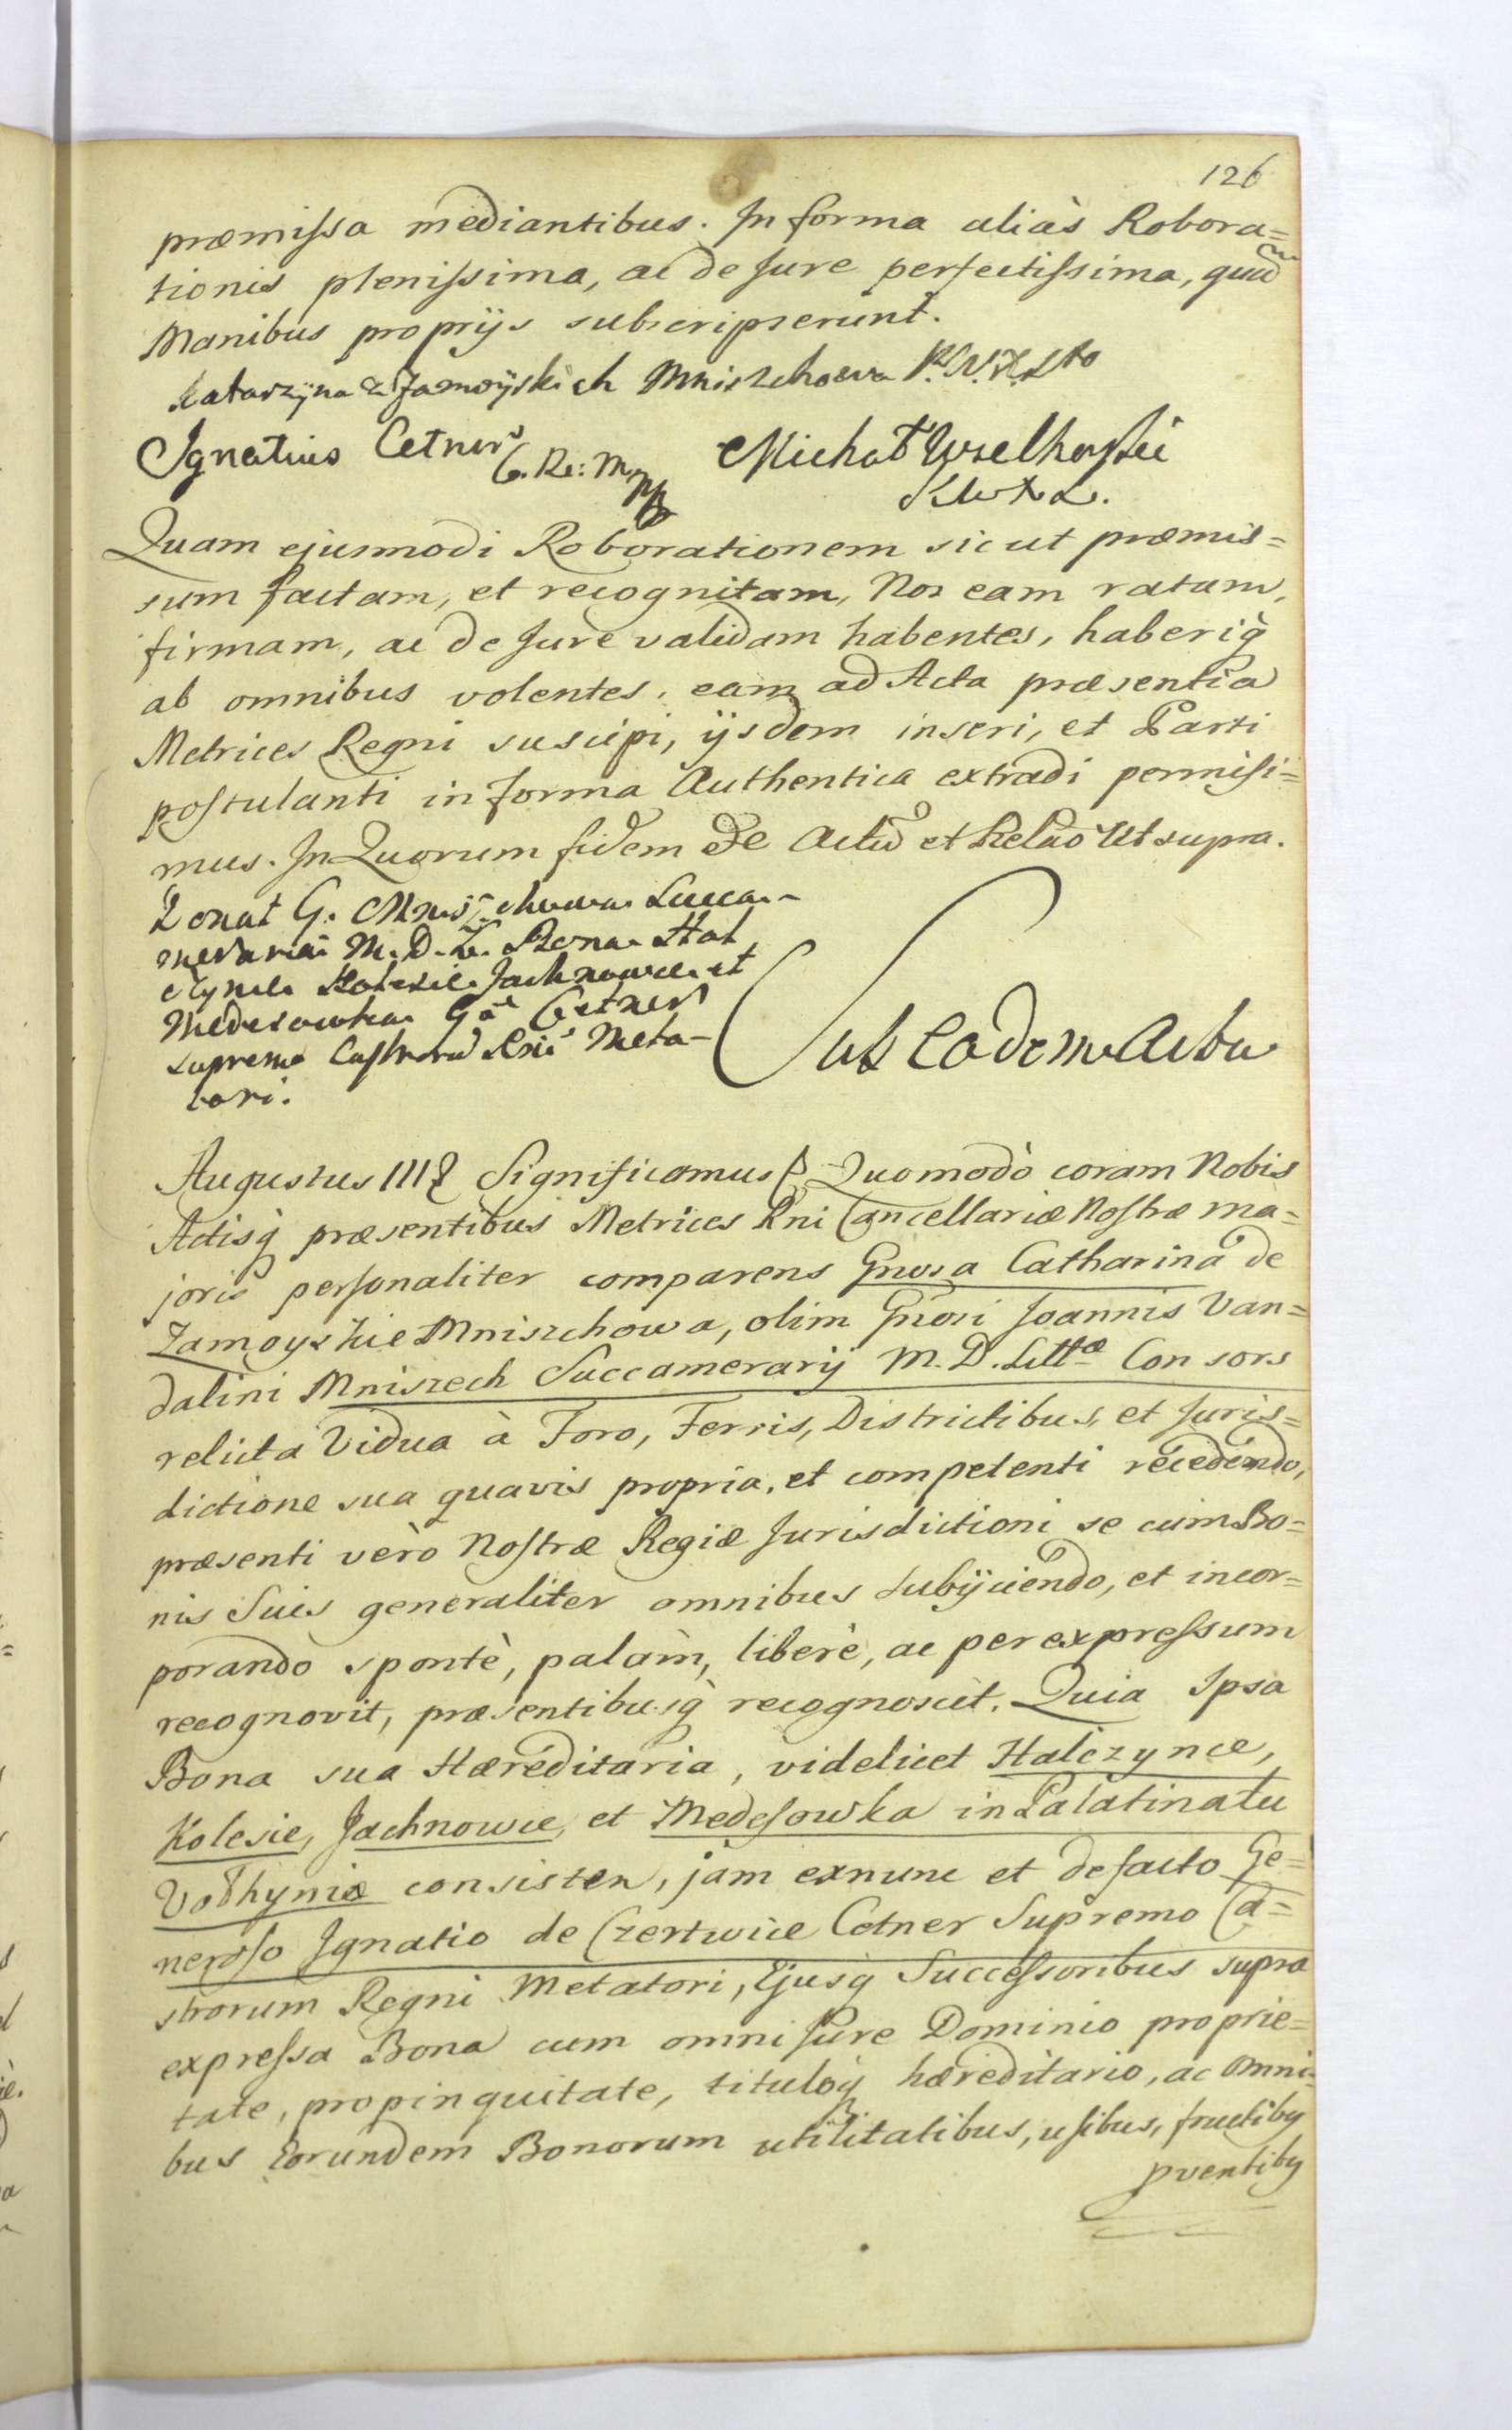 126
præmissa mediantibus. In forma aliàs Robora=
tionis plenissima, ac de Jure perfectissima, quam
Manibus proprijs subscripserunt.
Katarzyna z Zamoyskich Mniszchowa P. W. X. Lto
Ignatius Cetner
C. Re: M mpp
Michał Wielhorski
K W X L.
Quam ejusmodi Roborationem sic ut præmis=
sum factam, et recognitam, Nos eam ratam,
firmam, ac de Jure validam habentes, haberiq̀
ab omnibus volentes, eam ad Acta præsentia
Metrices Regni suscipi, ijsdem inseri, et Parti
postulanti in forma Authentica extradi permisi=
mus. In Quorum fidem De Actũ et Relaõ Ut supra.
Donat G. Mniszchowa Succa-
meraria M. D. L. Bona Hal
czynce Kolesie Jachnowce et
Medesowka Go Cetner
supremo Castrorũ Rni Meta-
tori.
Sub Eodem Actu
Augustus III Significamus Quomodò coram Nobis
Actisq̀ præsentibus Metrices Rni Cancellariæ Nostræ ma=
joris personaliter comparens Gnosa Catharina de
Zamoyskie Mniszchowa, olim Gnosi Joannis Van=
dalini Mniszech Succamerarij M. D. Littæ Consors
relicta Vidua à Foro, Terris, Districtibus, et Juris=
dictione sua quavis propria, et competenti recedendo,
præsenti verò Nostræ Regiæ Jurisdictioni se cum Bo=
nis Suis generaliter omnibus subijciendo, et incor=
porando spontè, palàm, liberè, ac per expressum
recognovit, præsentibusq̀ recognoscit. Quia Ipsa
Bona sua Hæreditaria, videlicet Halczynce,
Kolesie, Jachnowce, et Medesowka in Palatinatu
Volhyniæ consisten, jam exnunc et defacto Ge=
neroso Ignatio de Czertwice Cetner Supremo Ca=
strorum Regni Metatori, Ejusq̀ Successoribus supra
expressa Bona cum omni Jure Dominio proprie=
tate, propinquitate, tituloq̀ hæreditario, ac omni=
bus Eorundem Bonorum utilitatibus, usibus, fructiby
pventiby